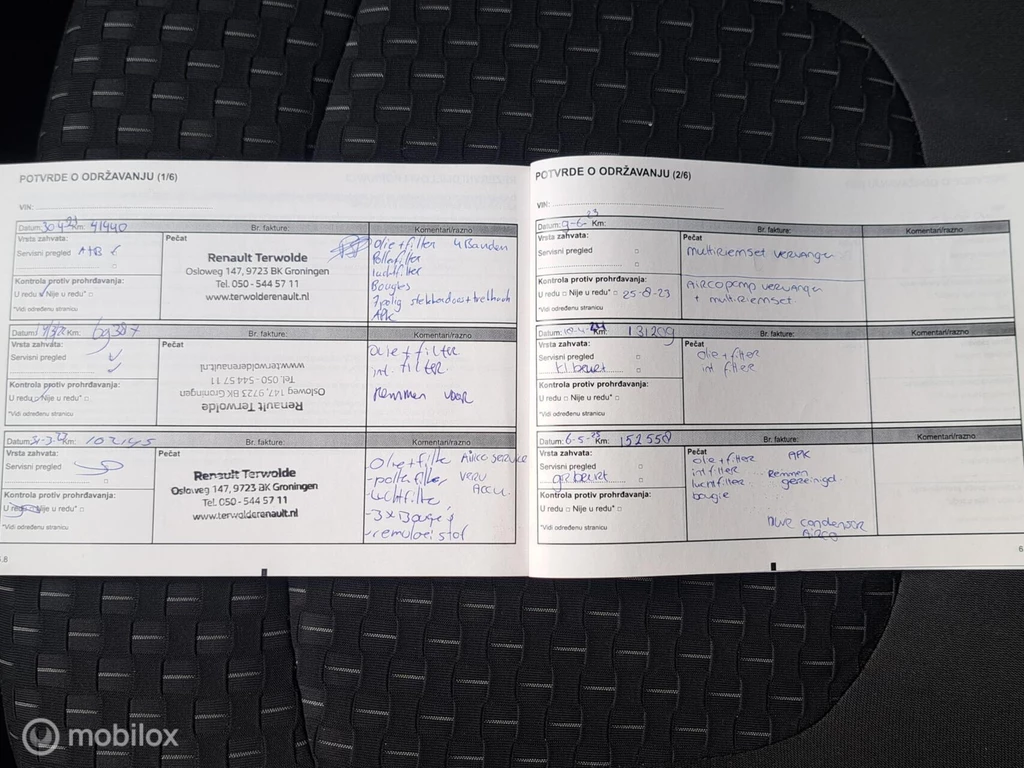 POTVRDE O ODRŽAVANJU (1/6)
VIN:
Datum: Km: 41440
Br. fakture:
Komentari/razno
Vrsta zahvata:
Servisni pregled A+B
Kontrola protiv prohrđavanja:
U redu □ Nije u redu* □
*Vidi određenu stranicu
Pečat
Renault Terwolde
Osloweg 147, 9723 BK Groningen
Tel. 050 - 544 57 11
www.terwolderenault.nl
Olie + filter 4 Banden
Pollenfilter
luchtfilter
Bougies
7 polig
APK
Datum: Km:
Br. fakture:
Komentari/razno
Vrsta zahvata:
Servisni pregled
Kontrola protiv prohrđavanja:
U redu □ Nije u redu* □
*Vidi određenu stranicu
Pečat
Renault Terwolde
Osloweg 147, 9723 BK Groningen
Tel. 050-544 57 11
www.terwolderenault.nl
olie + filter
int. filter
Remmen voor
Datum: Km: 102145
Br. fakture:
Komentari/razno
Vrsta zahvata:
Servisni pregled
Kontrola protiv prohrđavanja:
U redu □ Nije u redu* □
*Vidi određenu stranicu
Pečat
Renault Terwolde
Osloweg 147, 9723 BK Groningen
Tel. 050 - 544 57 11
www.terwolderenault.nl
Airco service
Accu
POTVRDE O ODRŽAVANJU (2/6)
VIN:
Datum: 9-6-23 Km:
Br. fakture:
Komentari/razno
Vrsta zahvata:
Servisni pregled
Kontrola protiv prohrđavanja:
U redu □ Nije u redu* □ 25-8-23
*Vidi određenu stranicu
Pečat
multiriemset vervangen
Aircopomp vervangen
+ multiriemset
Datum: Km: 131209
Br. fakture:
Komentari/razno
Vrsta zahvata:
Servisni pregled
kl beurt
Kontrola protiv prohrđavanja:
U redu □ Nije u redu* □
*Vidi određenu stranicu
Pečat
olie + filter
int filter
Datum: Km: 152558
Br. fakture:
Komentari/razno
Vrsta zahvata:
Servisni pregled
gr beurt
Kontrola protiv prohrđavanja:
U redu □ Nije u redu* □
*Vidi određenu stranicu
Pečat
olie + filter APK
int filter Remmen
luchtfilter gereinigd
bougie
condensor
Airco
mobilox